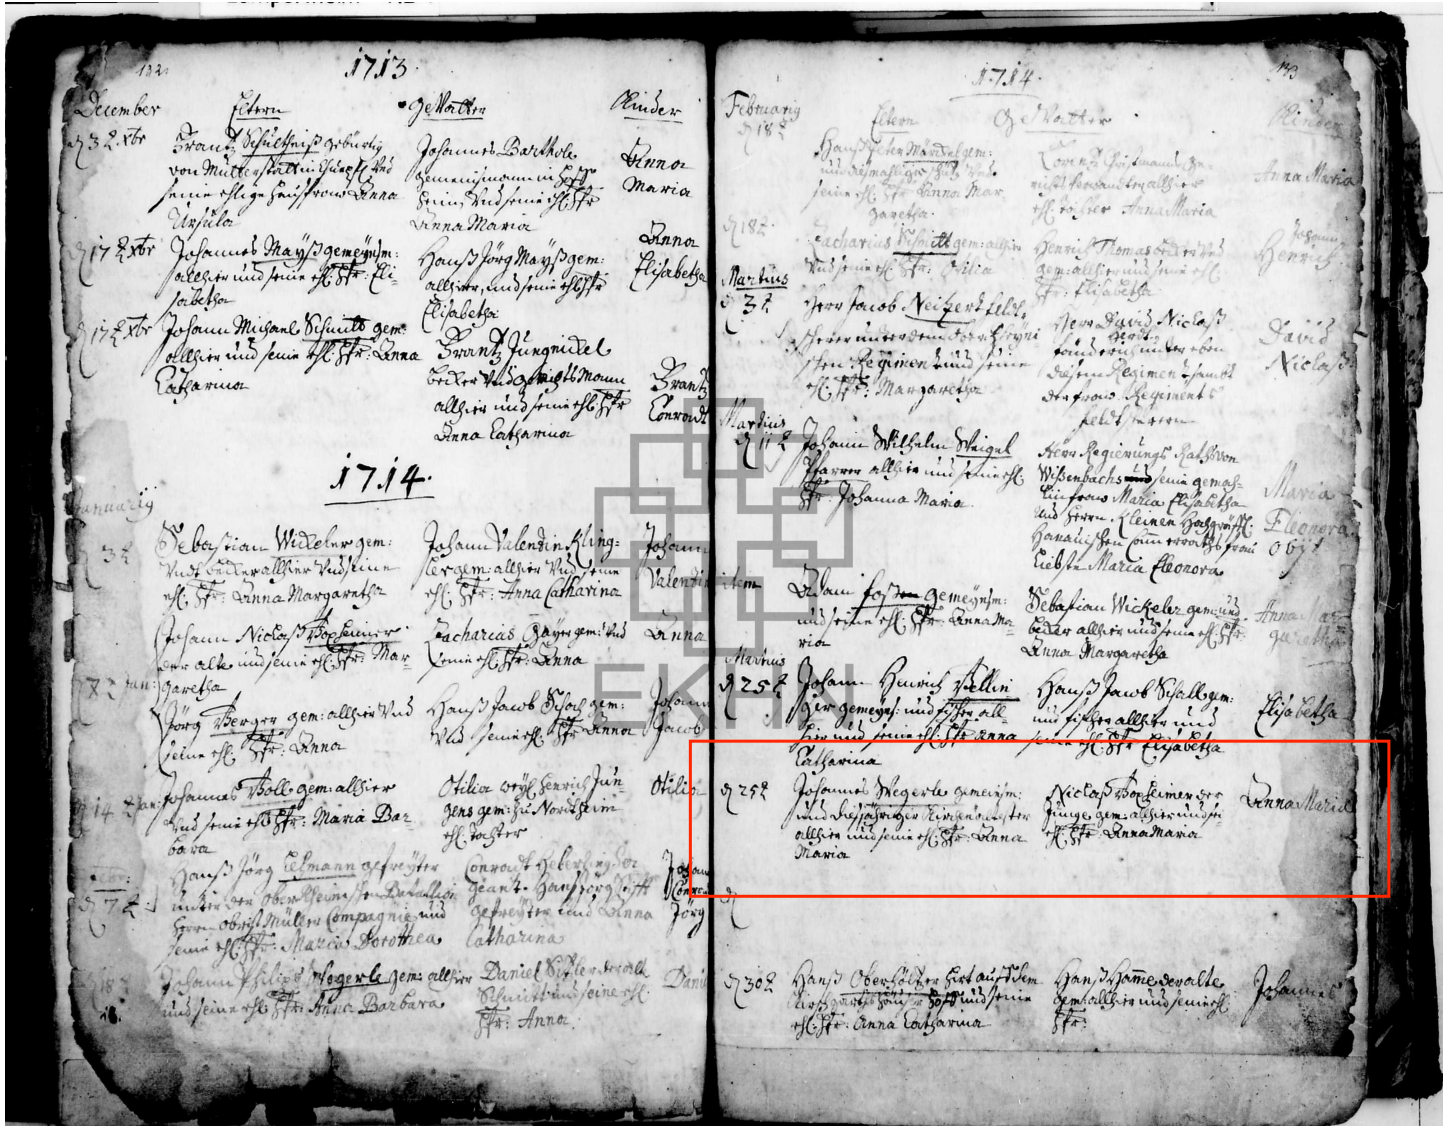 122.
1713.
December Eltern GeVatter Kinder
d 3 t. Xbr Frantz Schultheiß gebürtig
von Mutterstatt und
seine ehlige haußfrau Anna
Ursula
Johannes Barthole
gemeinsmann in
heim, Vnd seine ehl. Hfr
Anna Maria
Anna
Maria
d 17 t Xbr Johannes Mayß gemeinsm:
allhier und seine ehl. Hfr: Eli-
sabetha
Hanß Jörg Mayß gem:
allhier, und seine ehl. Hfr
Elisabetha
Anna
Elisabetha
d 17 t Xbr Johann Michael Schmitt gem:
allhier und seine ehl. Hfr: Anna
Catharina
Frantz Jungnickel
becker Vnd gerichts Mann
allhier und seine ehl. Hfr
Anna Catharina
Frantz
Conradt
1714.
Januarij
3 t Sebastian Wickeler gem:
Vndt becker allhier Vnd seine
ehl. Hfr: Anna Margaretha
Johann Valentin Kling-
ler gem: allhier Vnd seine
ehl. Hfr: Anna Catharina
Johann
Valentin
Johann Niclaß Bopheimer
der alte und seine ehl. Hfr: Mar-
garetha
Zacharias Gayer gem: Vnd
seine ehl. Hfr: Anna
Anna
7 t Jan: Jörg Berger gem: allhier Vnd
seine ehl. Hfr: Anna
Hanß Jacob Schach gem:
Vnd seine ehl. Hfr Anna
Johann
Jacob
14 t Jan: Johannes Boll gem: allhier
Vnd seine ehl. Hfr: Maria Bar-
bara
Otilia weyl. Henrich Jun-
gens gem: zu Northeim
ehl. tochter
Otilia
d 7 t. Hanß Jörg gefreyter
unter der Ober Rheinischen Battallion
Herrn Obrist Müller Compagnie und
seine ehl. Hfr: Maria Dorothea
Conradt Heberling Ser
geant. Hanß Jörg
gefreyter und Anna
Catharina
Johann
Conradt
Jörg
18 Johann Philips Wegerle gem: allhier
und seine ehl. Hfr: Anna Barbara
Daniel der alte
Schmitt und seine ehl.
Hfr: Anna.
Daniel
1714.
Februarij Eltern GeVatter Kinder
d 18 t Hanß Peter Märckel gem:
und Vnd
seine ehl. Hfr Anna Mar-
garetha.
Lorentz Ge-
richts Verwandten allhier
ehl. tochter Anna Maria
Anna Maria
d 18 t Zacharias Schmitt gem: allhier
Vnd seine ehl. Hfr: Otilia
Henrich Thomas Vnd
gem: allhier und seine ehl.
Hfr: Elisabetha
Johann
Henrich
Martius
d 3 t Herr Jacob Neitzert feldt-
scherer unter dem
schen Regiment und seine
ehl. Hfr: Margaretha
Herr David Niclaß
unter eben
diesem Regiment sambt
der frau Regiments
feldtscherin
David
Niclaß
Martius
d 11 t Johann Wilhelm Weigel
Pfarrer allhier und seine ehl.
Hfr: Johanna Maria
Herr Regierungs Raths von
Wißenbachs und seine gemah-
lin frau Maria Elisabetha
Und Herrn Kleinen Hochgräffl.
Hanauischen Cammerraths frau
liebste Maria Eleonora
Maria
Eleonora
obijt
item Adam gemeinsm:
und seine ehl. Hfr: Anna Ma-
ria
Sebastian Wickeler gem: und
becker allhier und seine ehl. Hfr:
Anna Margaretha
Anna Mar-
garetha
Martius
d 25 t Johann Henrich Bellin
ger gemeins: und fischer all-
hier und seine ehl. Hfr Anna
Catharina
Hanß Jacob Schall gem:
und fischer allhier und
seine ehl. Hfr Elisabetha
Elisabetha
d 25 t Johannes Wegerle gemeinsm:
und diesjähriger Kirchenältester
allhier und seine ehl. Hfr: Anna
Maria
Niclaß Bopheimer der
Junge gem: allhier und sei
ehl. Hfr: Anna Maria
Anna Maria
d
d 30 t Hanß Oberhöltzer hirt auff dem
Kirschgartshäußer hoff und seine
ehl. Hfr: Anna Catharina
Hanß Hamme der alte
gem: allhier und seine ehl.
Hfr:
Johannes
EKHN